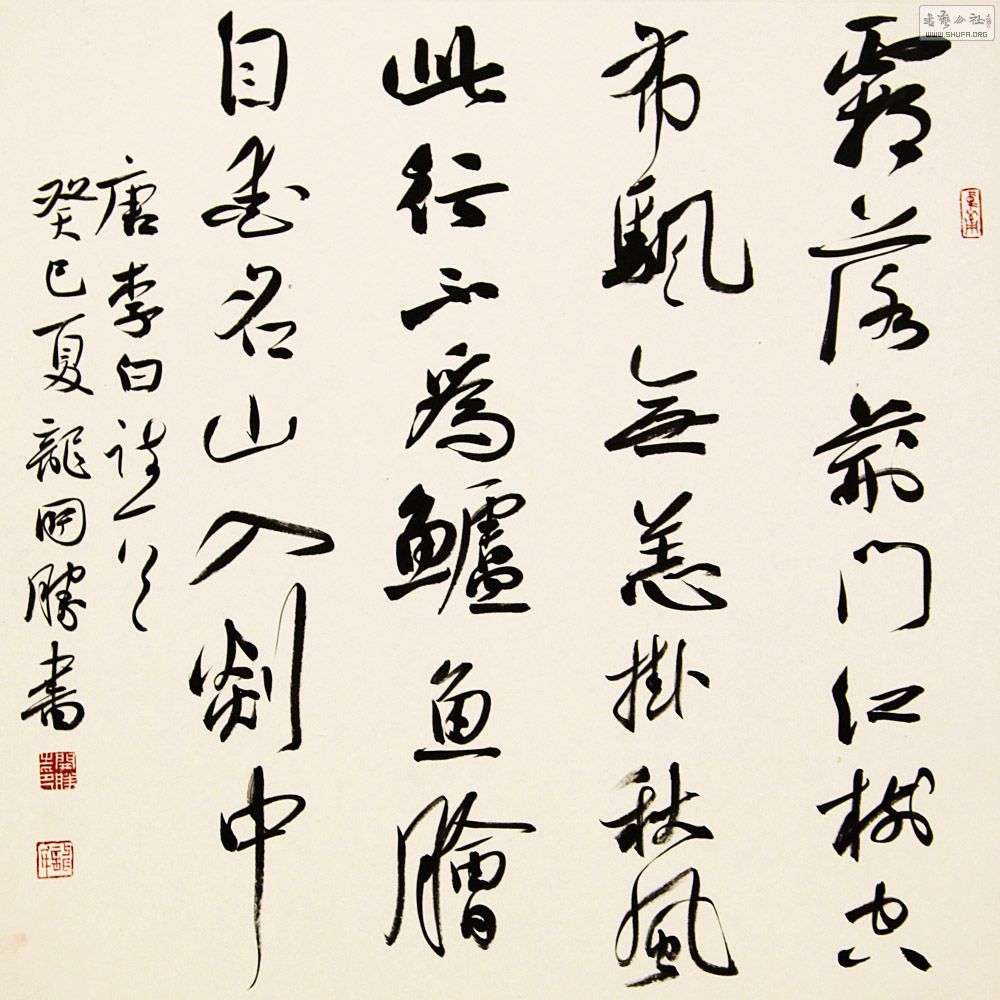 霜落荊門江樹空
布颿無恙掛秋風
此行不爲鱸魚膾
自愛名山入剡中
唐李白詩一首
癸巳夏龍開勝書
書藝公社
WWW.SHUFA.ORG